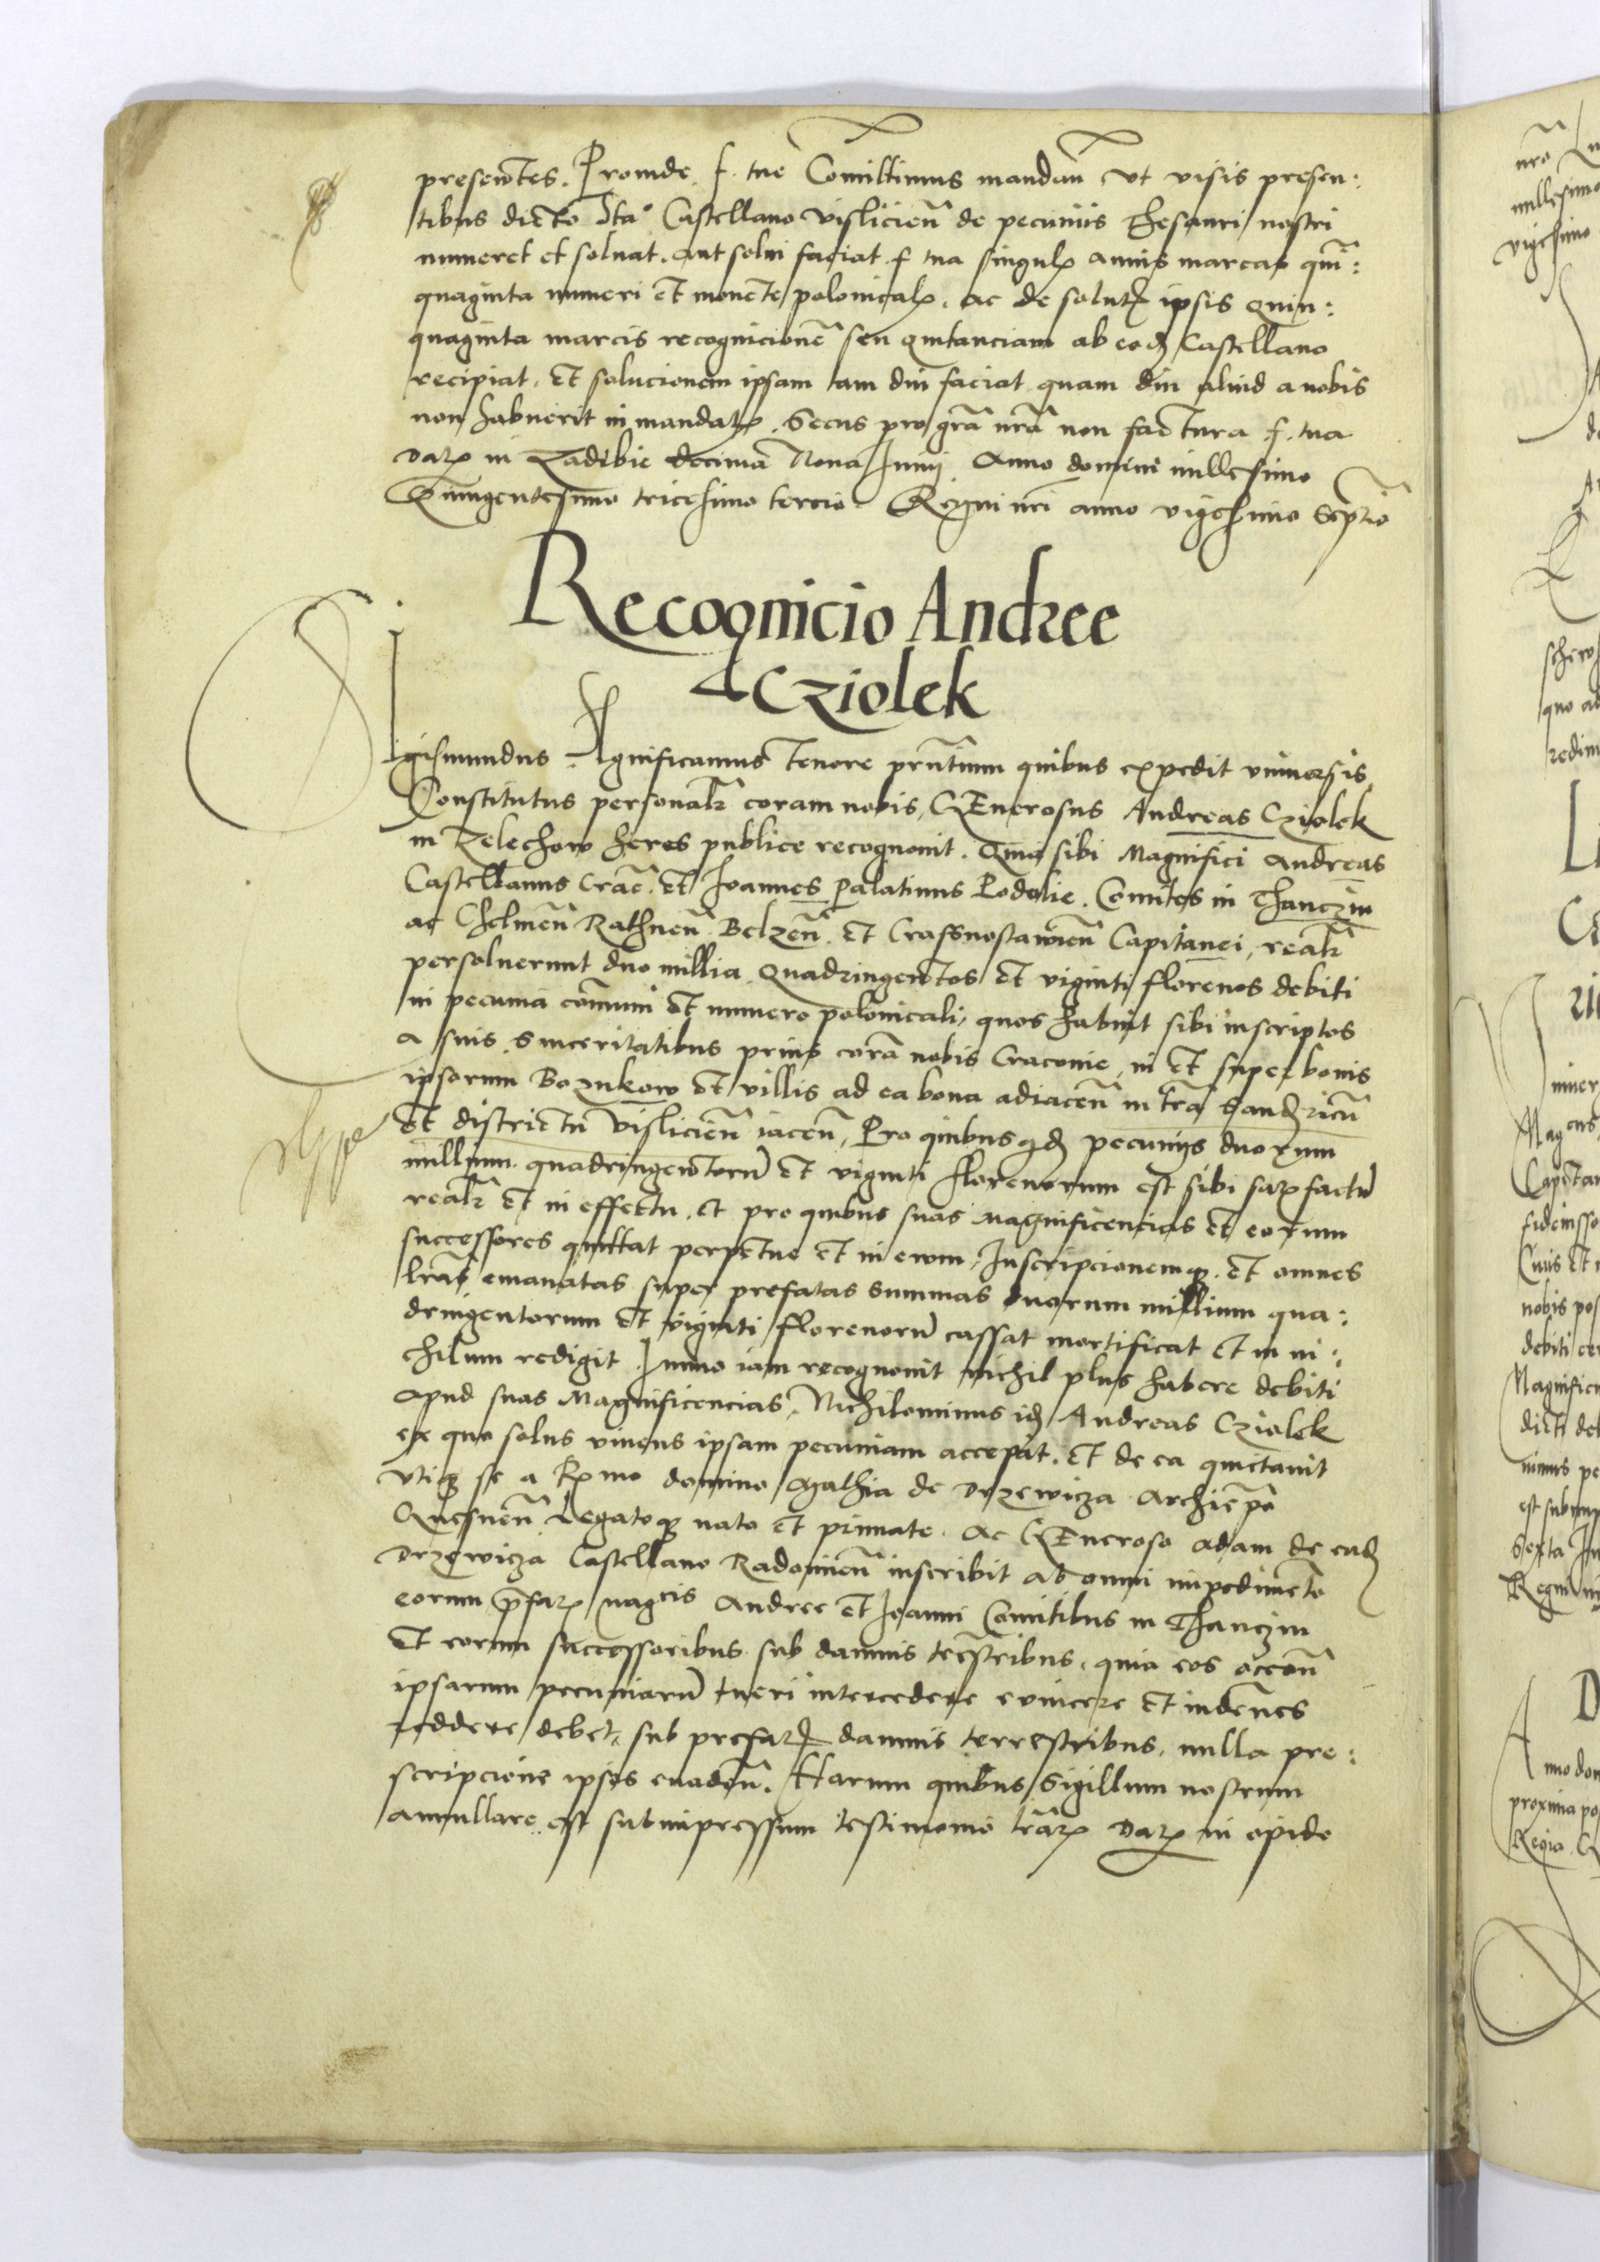 presentes. Proinde f. tue Comittimus mandan. Ut visis presen:
tibus dicto Sta. Castellano Vislicien̄ de pecuniis Thesauri nostri
numeret et solvat. aut solvi faciat f tua singul annis marcas quin:
quaginta numeri et monete polonical. ac de solut ipsis Quin:
quaginta marcis recognicionē seu quitanciam ab eod Castellano
recipiat. Et solucionem ipsam tam diu faciat quam diu aliud a nobis
non habuerit in mandat. Secus pro grā nrā non factura f. tua
Dat in decima Nona Junii Anno domini millesimo
Quingentesimo tricesimo tercio Regni nri anno vigesimo Septīo
Recognicio Andree
Cziolek
Sigismundus Significamus Tenore prn̄tium quibus expedit universis
Constitutus personalr coram nobis, GEnerosus Andreas Cziolek
in Zelechow heres publice recognovit. Quia sibi Magnifici Andreas
Castellanus Crac̄. et Joannes Palatinus Podolie. Comites in Thanczin
ac Chelmen̄ Rathnen̄ Belzen̄. et Crassnostawien̄ Capitanei, realr
persolverunt duo millia Quadringentos et viginti florenos debiti
in pecunia com̄uni et numero polonicali, quos habuit sibi inscriptos
a suis Sinceritatibus prius corā nobis Cracovie, in et super bonis
ipsorum Bozukow et villis ad ea bona adiacen̄ in tr̄a Sandricn̄
et districtu Vislicien̄ iacen̄, Pro quibus qd pecuniis duorum
millium quadringentorū et viginti florenorum est sibi sat factū
realr et in effectu. Et pro quibus suas Magnificencias et eorum
successores quittat perpetue et in evum, Inscripcionemq. et omnes
lrās emanatas super prefatas summas duorum millium qua:
dringentorum et viginti florenorū cassat mortificat et in ni:
chilum redigit. Immo iam recognovit nichil plus habere debiti
apud suas Magnificencias, Nichilominus id Andreas Cziolek
ex quo solus vivens ipsam pecuniam accepit. et de ea quictavit
Utiq se a Rmo domino Mathia de Drzewicza Archiēpo
Gnesnen̄ Legatoq nato et primate. Ac GEneroso Adam de ead
Drzewicza Castellano Radomien̄ inscribit ab omni impedimēto
eorum p̄fat magcis Andree et Joanni Comitibus in Thanczin
et eorum successoribus sub damnis terrestribus, quia eos occōn̄
ipsarum pecuniarū tueri intercedere evincere et indēnes
reddere debet, sub prefat damnis terrestribus, nulla pre:
scripcione ipsos evaden̄. Harum quibus Sigillum nostrum
annullare est subimpressum testimonio lrār Dat in opido